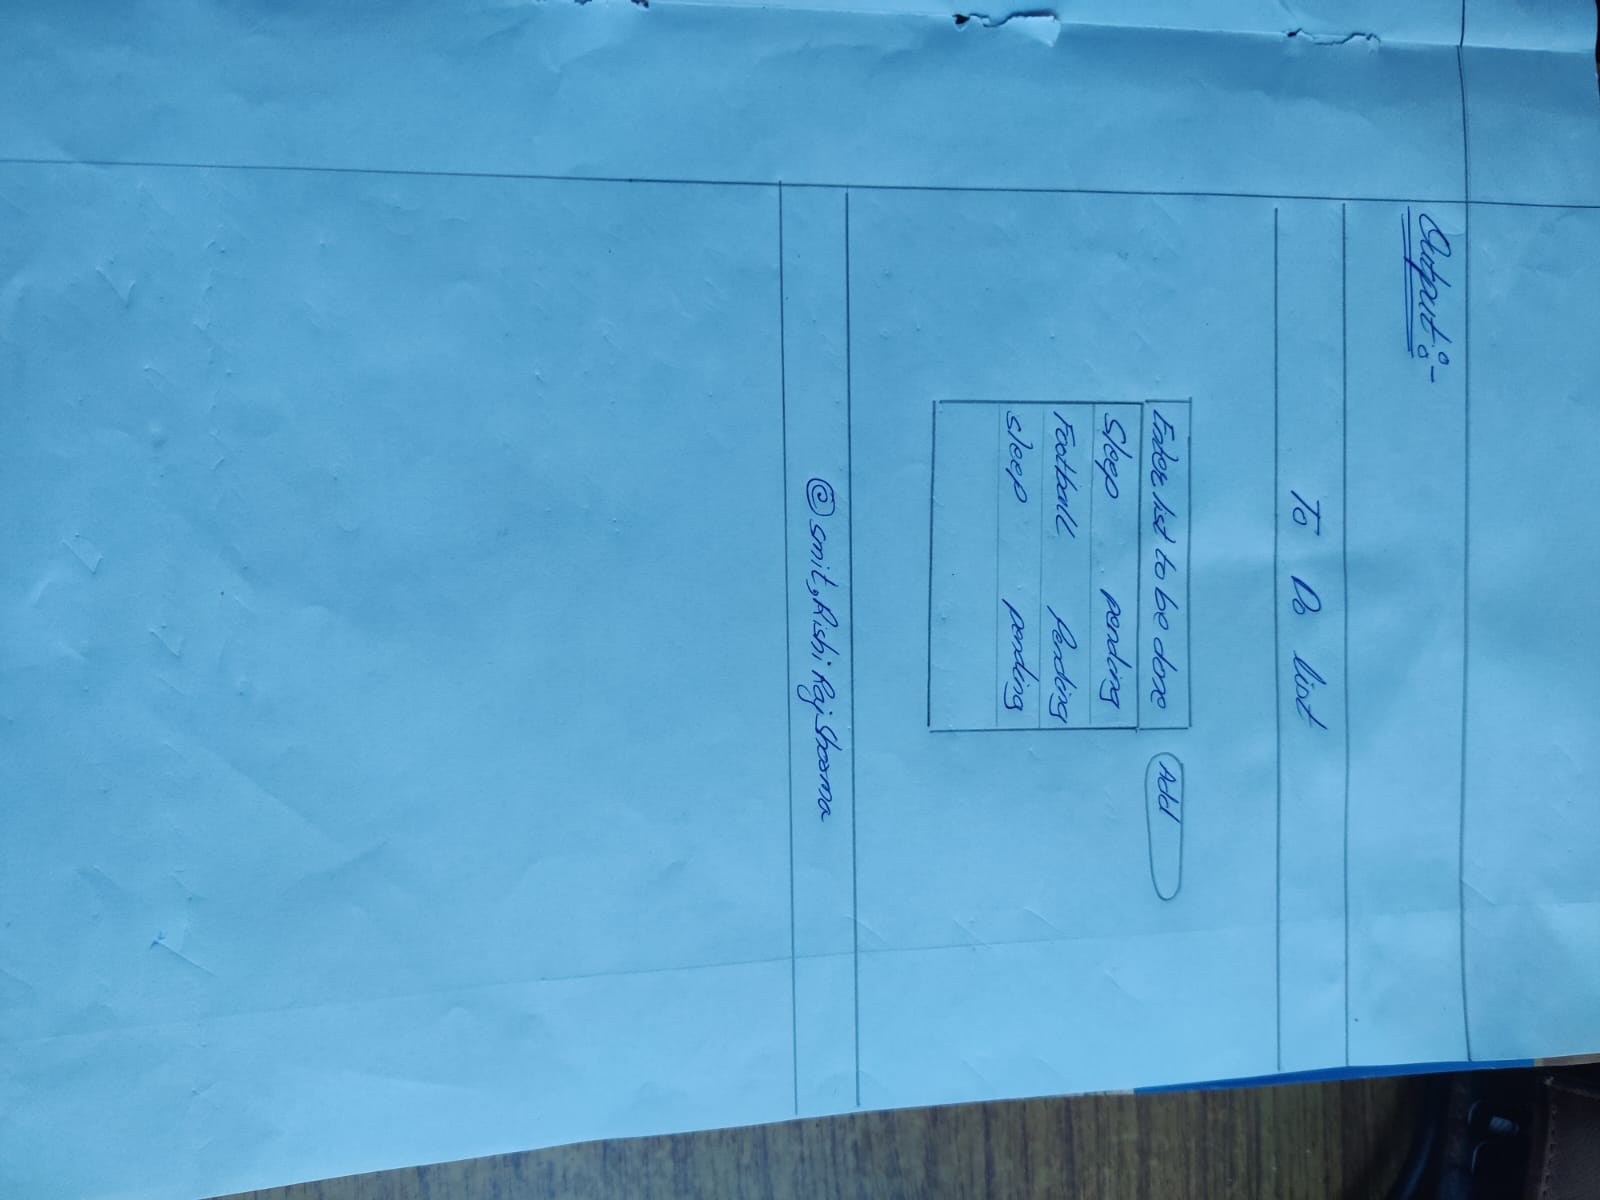 Output:-
To Do list
Enter list to be done Add
Sleep pending
Football Pending
sleep pending
© smit, Rishi Raj Sharma